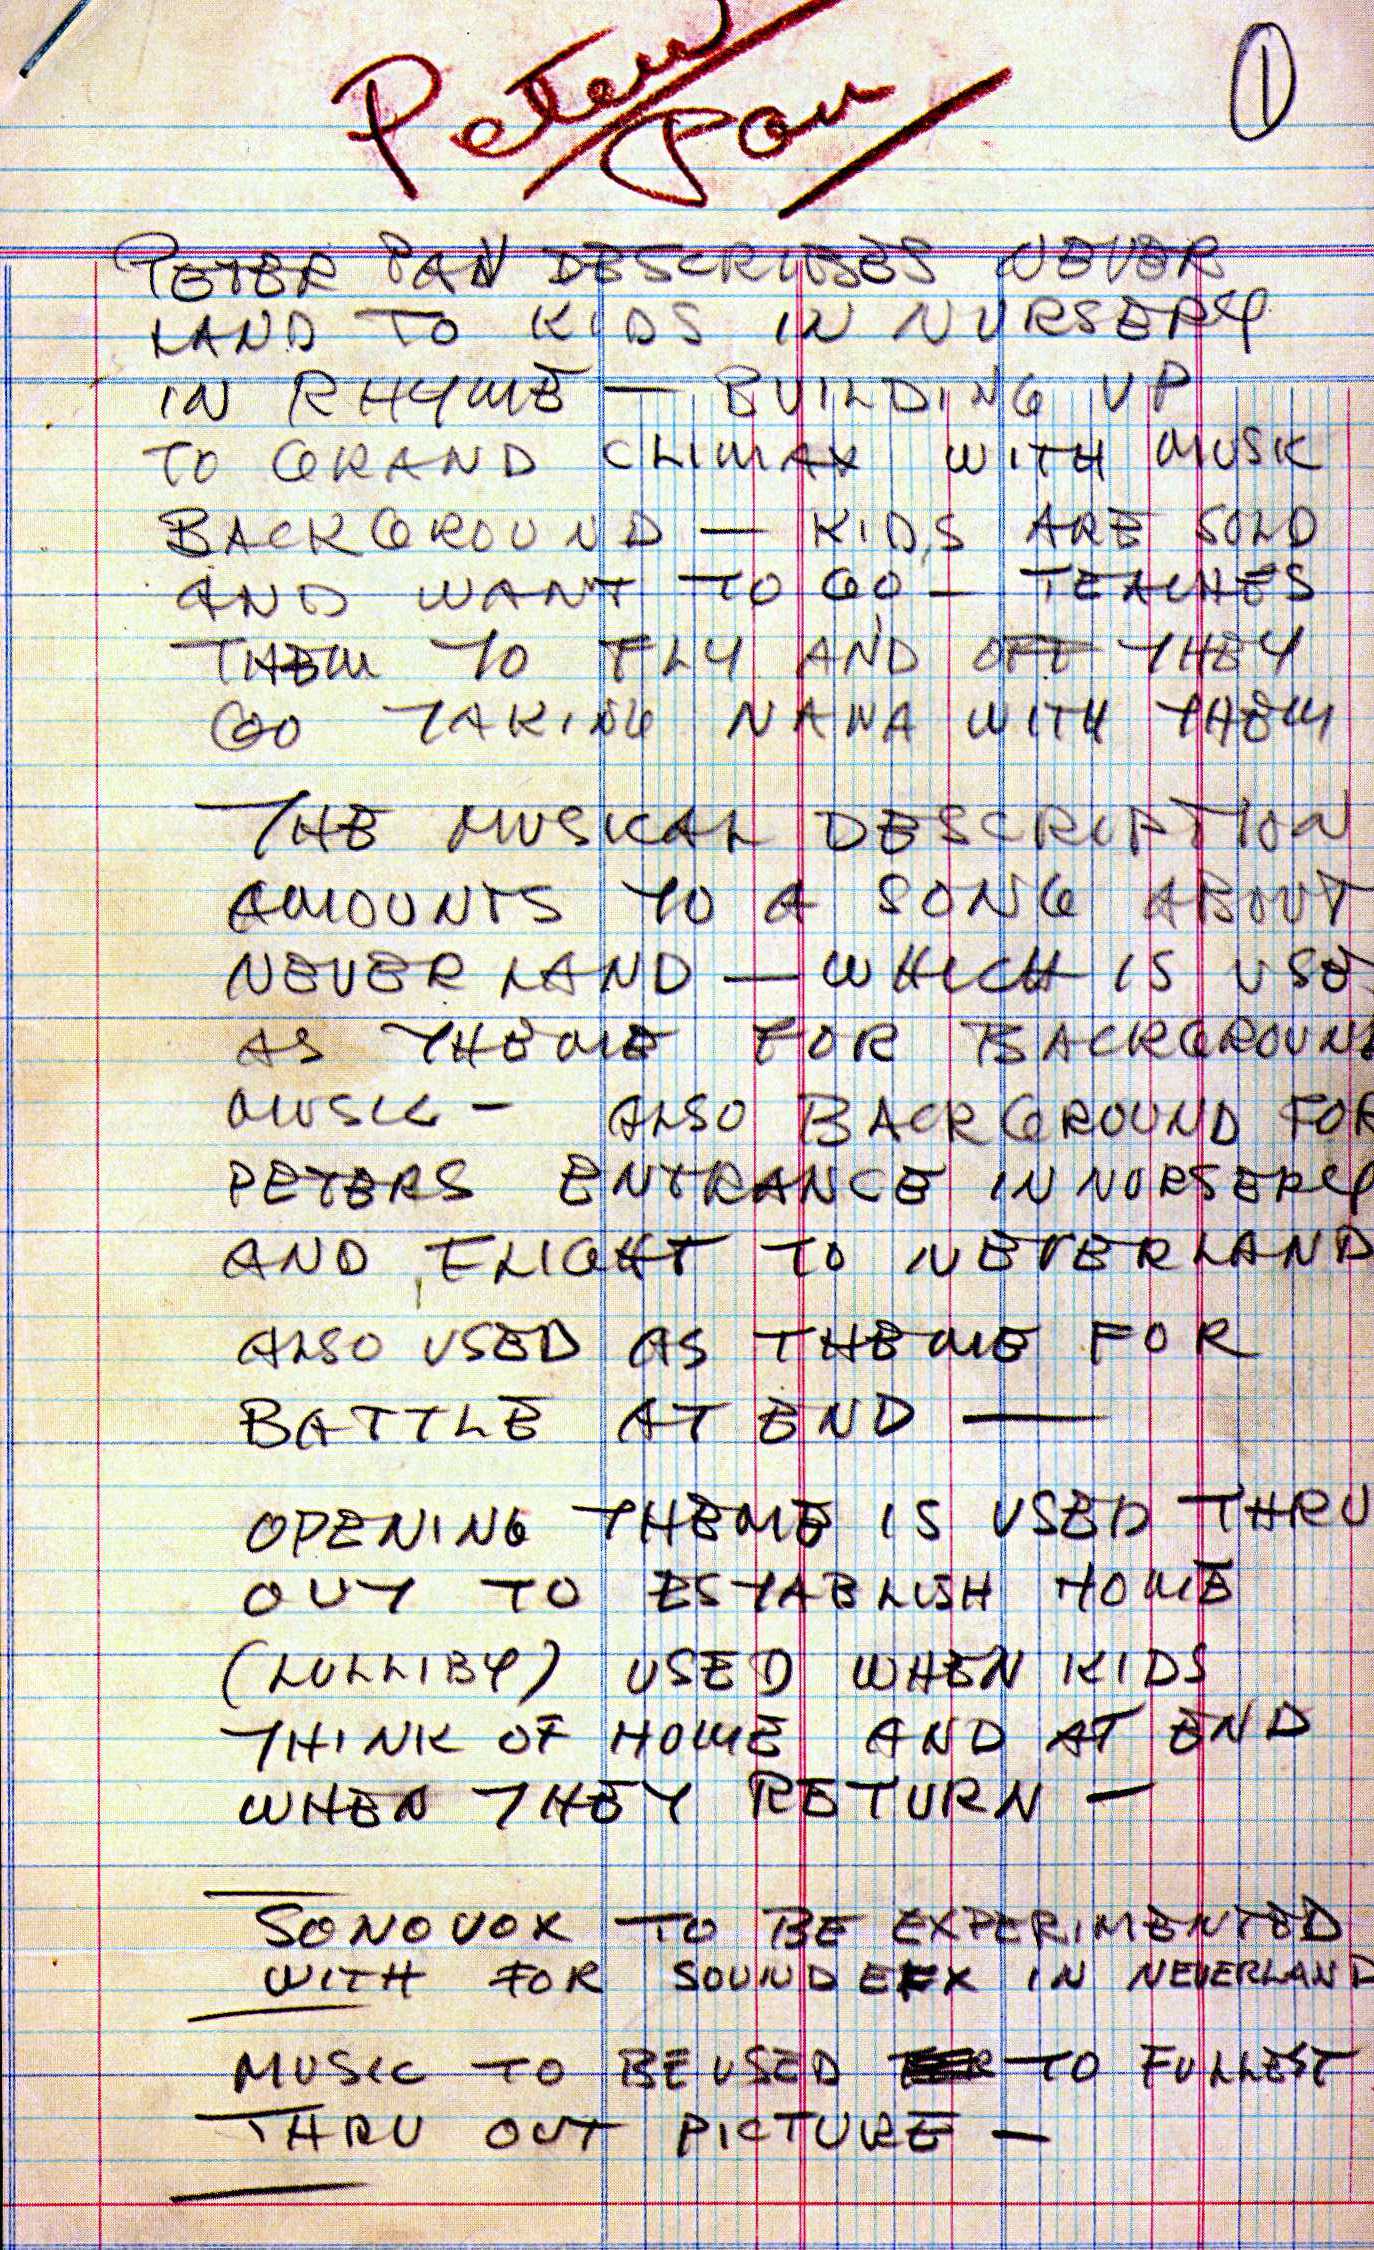 Peter
Pan
1
PETER PAN DESCRIBES NEVER
LAND TO KIDS IN NURSERY
IN RHYME — BUILDING UP
TO GRAND CLIMAX WITH MUSIC
BACKGROUND — KIDS ARE SOLD
AND WANT TO GO — TEACHES
THEM TO FLY AND OFF THEY
GO TAKING NANA WITH THEM
THE MUSICAL DESCRIPTION
AMOUNTS TO A SONG ABOUT
NEVER LAND — WHICH IS USED
AS THEME FOR BACKGROUND
MUSIC — ALSO BACKGROUND FOR
PETERS ENTRANCE IN NURSERY
AND FLIGHT TO NEVERLAND
ALSO USED AS THEME FOR
BATTLE AT END —
OPENING THEME IS USED THRU
OUT TO ESTABLISH HOME
(LULLIBY) USED WHEN KIDS
THINK OF HOME AND AT END
WHEN THEY RETURN —
SONOVOX TO BE EXPERIMENTED
WITH FOR SOUND EFX IN NEVERLAND
MUSIC TO BE USED TO FULLEST
THRU OUT PICTURE —